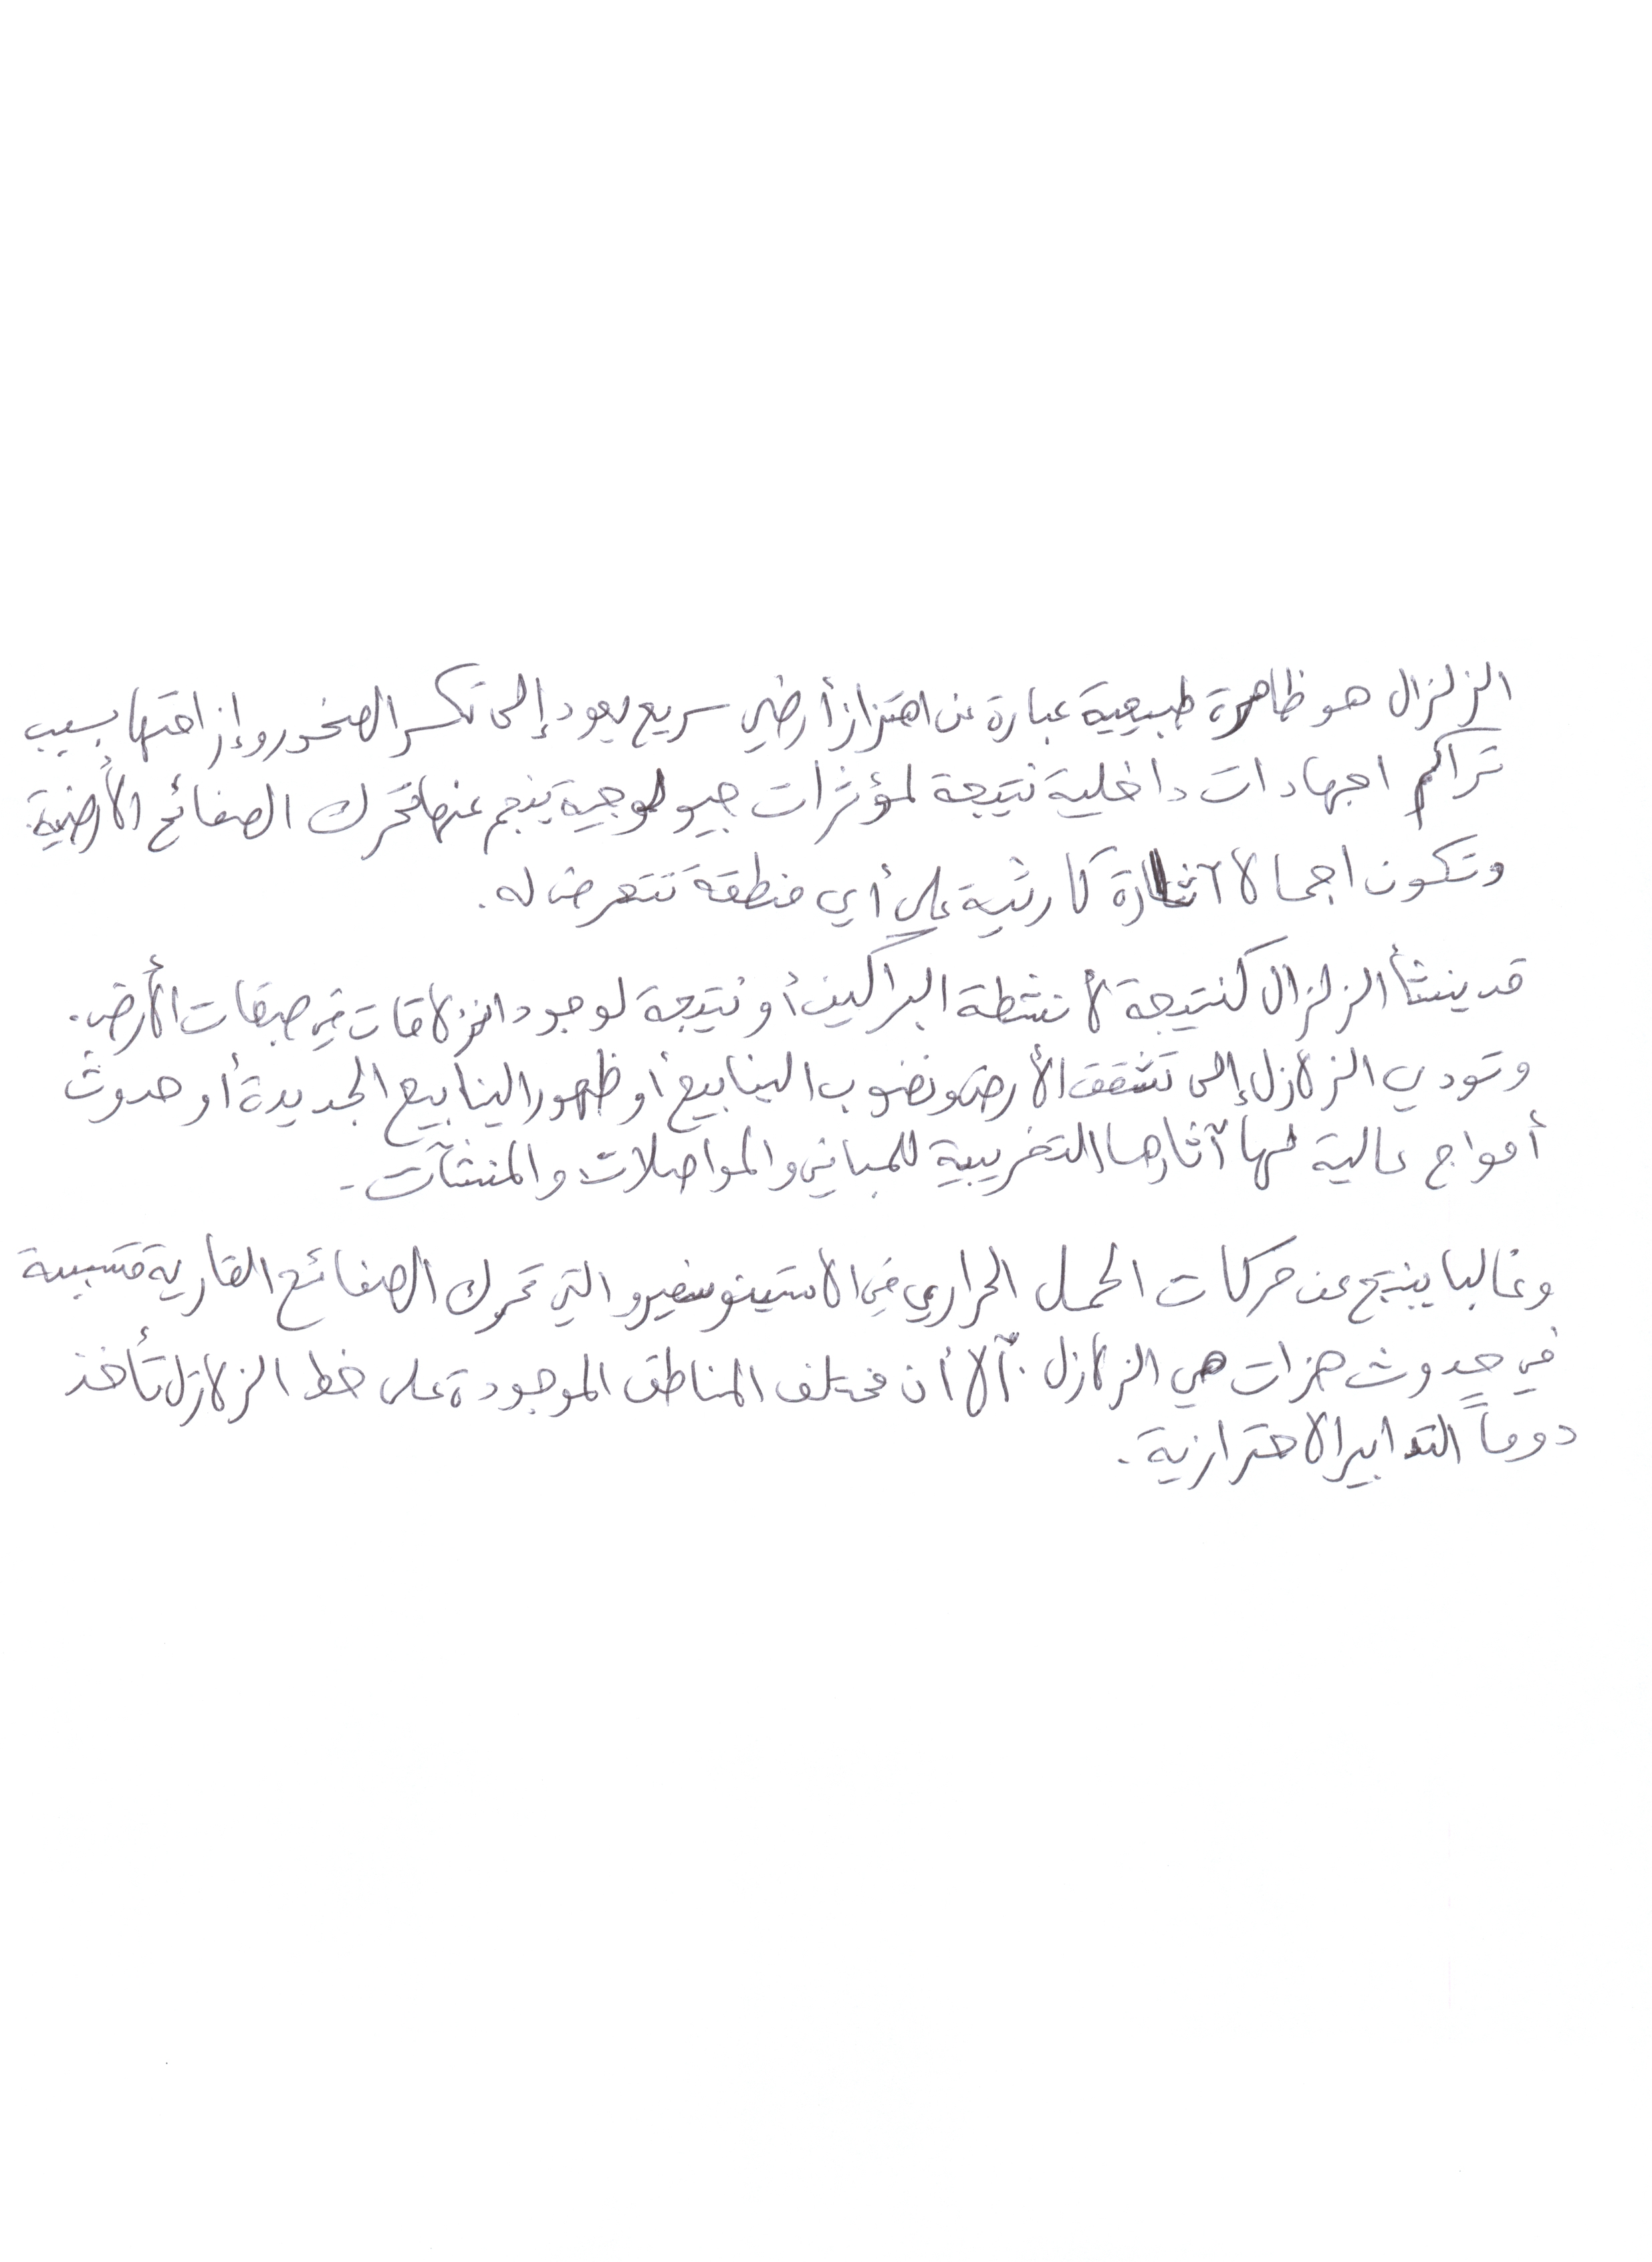 الزلزال هو ظاهرة طبيعية عبارة عن اهتزاز أرضي سريع يعود إلى تكسر الصخور وإزاحتها بسبب
تراكم اجهادات داخلية نتيجة لمؤثرات جيولوجية ينجم عنها تحرك الصفائح الأرضية.
وتكون اجمالا آثاره كارثية على أي منطقة تتعرض له.
قد ينشأ الزلزال كنتيجة لأنشطة البراكين أو نتيجة لوجود انزلاقات في طبقات الأرض.
وتودي الزلازل إلى تشقق الأرض ونضوب الينابيع أو ظهور الينابيع الجديدة أو حدوث
أمواج عالية لها آثارها التخريبية للمباني والمواصلات والمنشآت.
وغالبا ينتج عن حركات الحمل الحراري في الاستينوسفير والتي تحرك الصفائح القارية متسببة
في حدوث هزات هي الزلازل. آلا أن مختلف المناطق الموجودة على خط الزلازل تأخذ
دوماً التدابير الاحترازية.